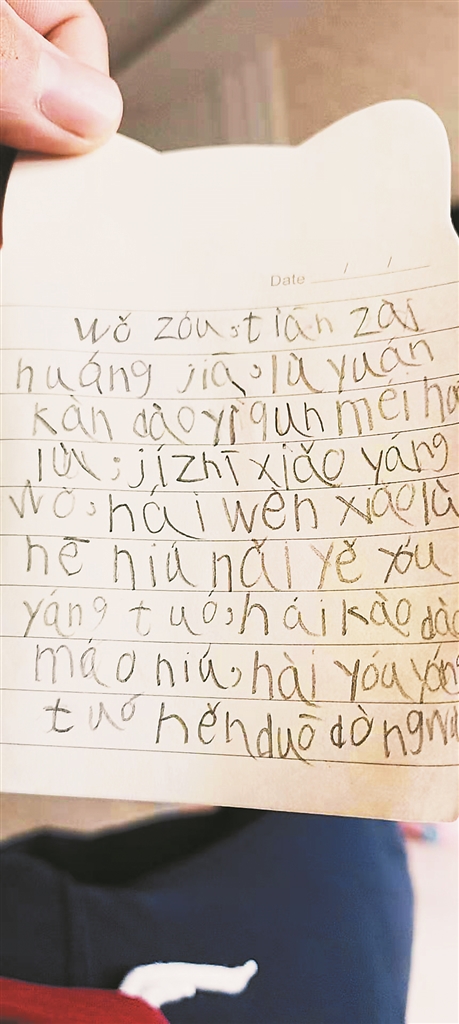 Date / /
wǒ zóu,tiān zài
huáng jiā,lù yuán
kàn dào yì qún méi ho
lùi,jízhī xiǎo yáng
wǒ,hái wèn xiǎo lù
hē niú nǎi yě yóu
yáng tuó,hái kào dào
máo niú,hài yóu yáng
tuó hěn duō dòngwu